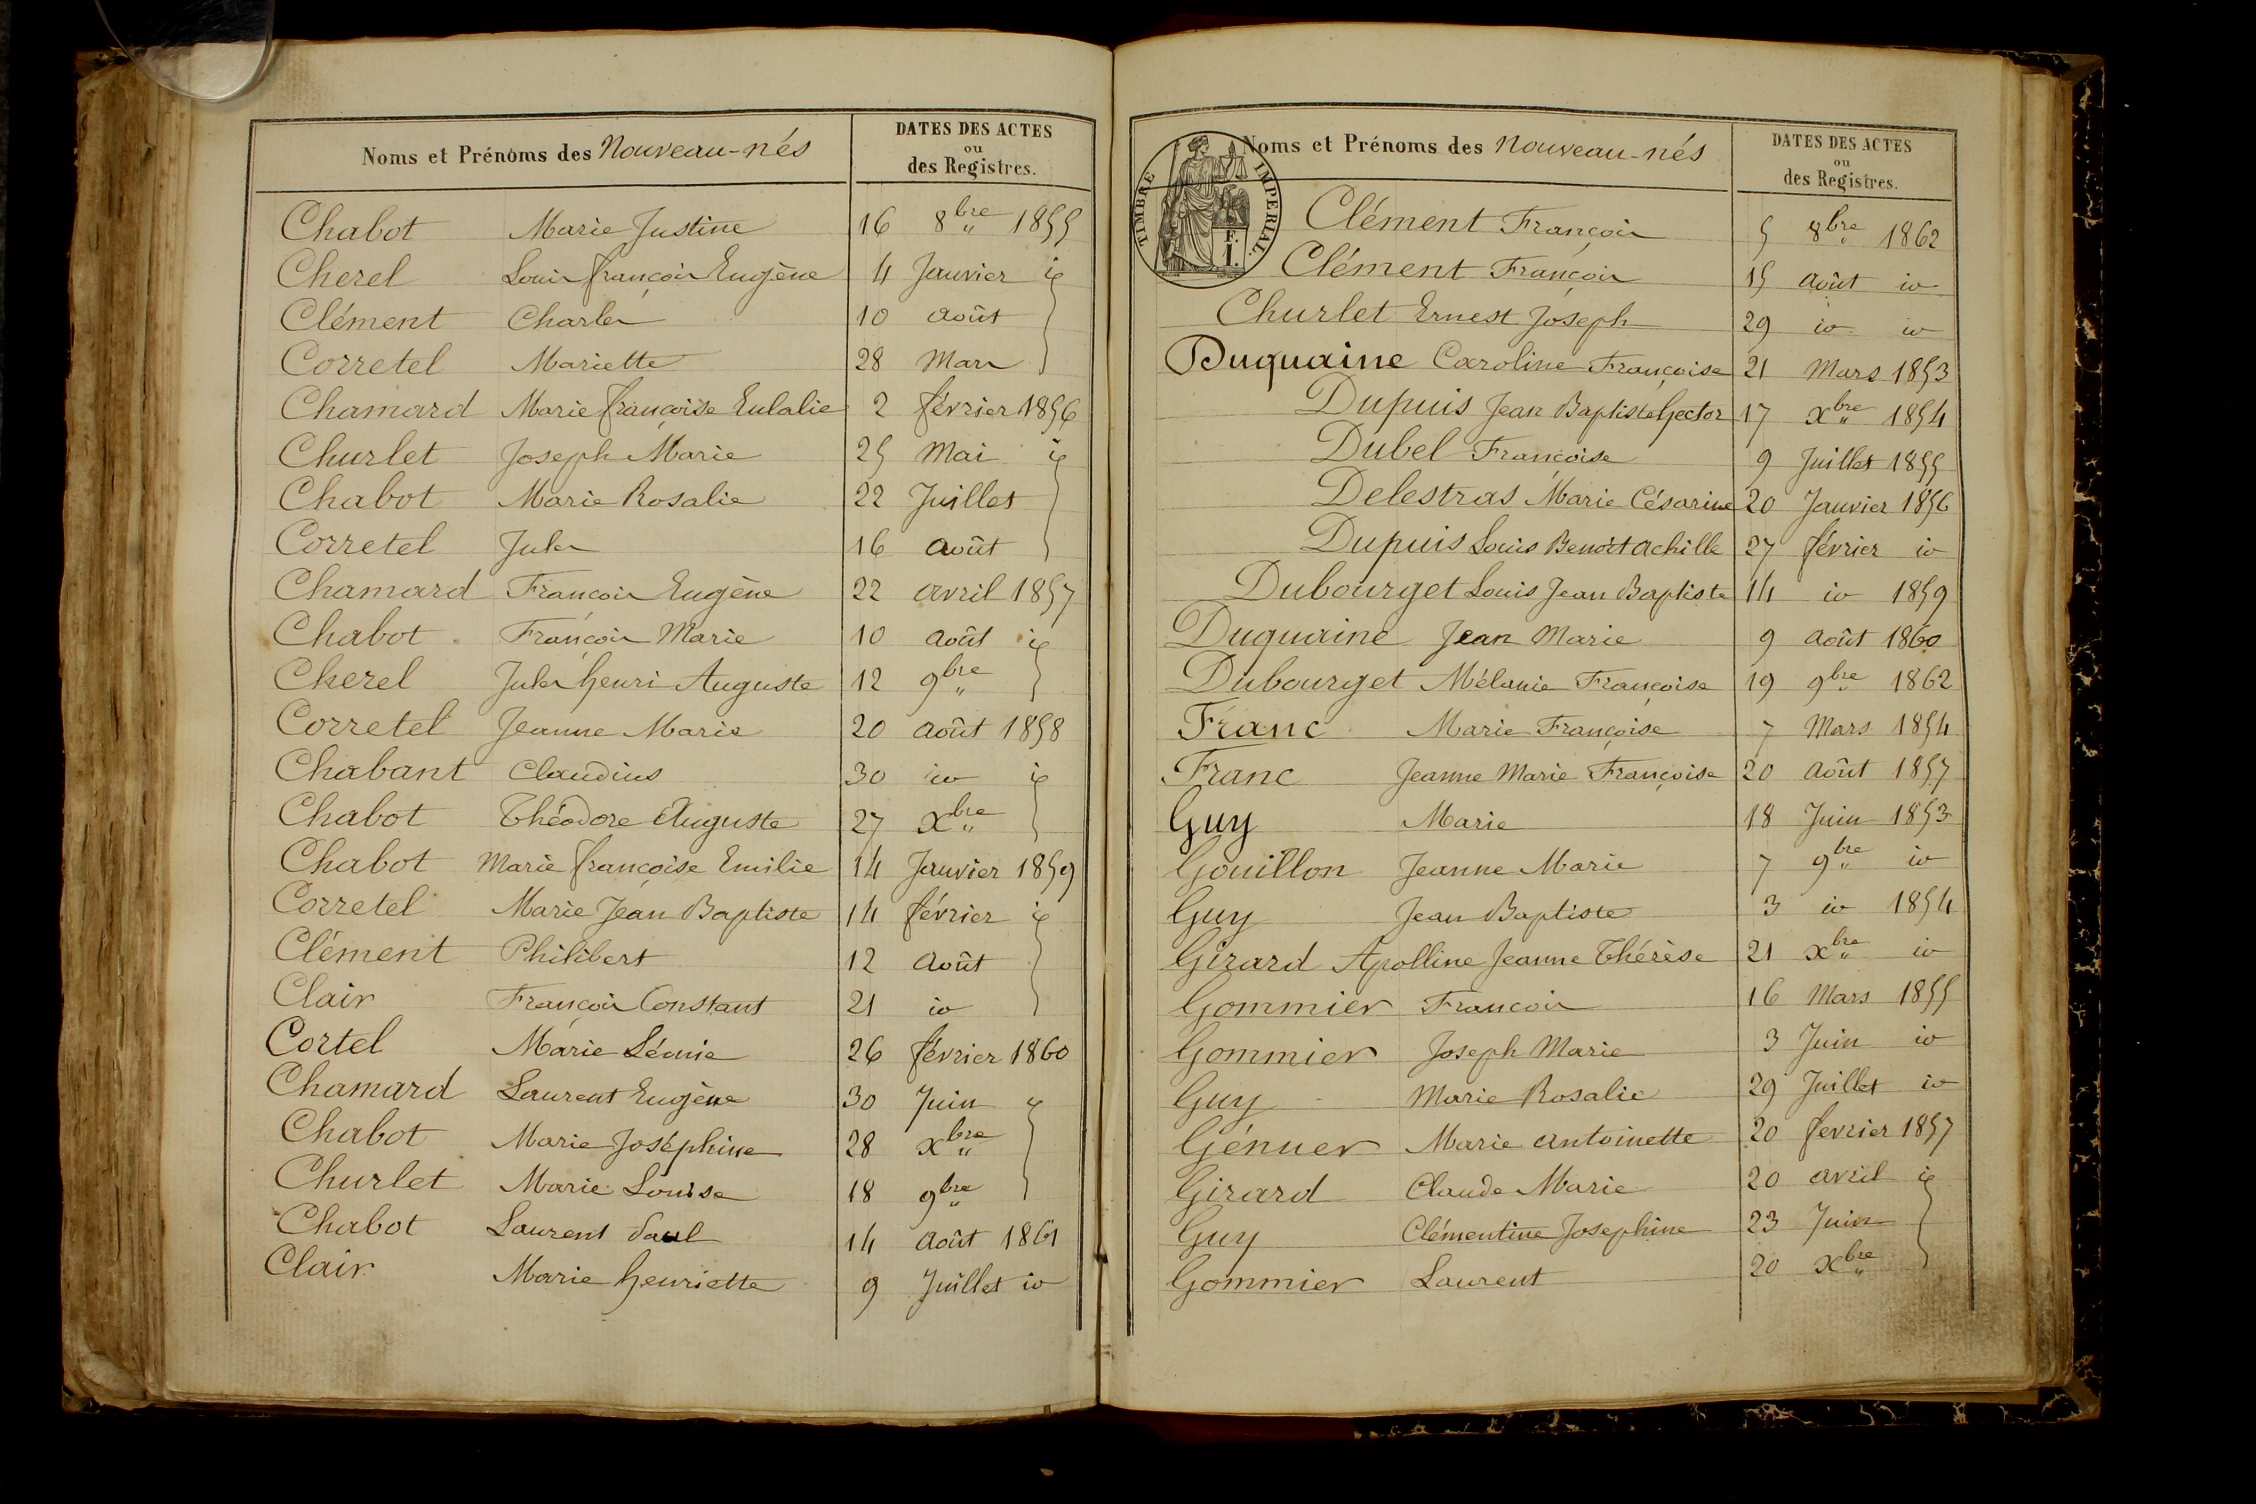 Noms et Prénoms des Nouveau-nés
DATES DES ACTES
ou
des Registres.
Chabot Marie Justine 16 8bre 1855
Cherel Louis françois Eugène 4 Janvier id
Clément Charles 10 août
Corretel Mariette 28 Mars
Chamard Marie françoise Eulalie 2 février 1856
Churlet Joseph Marie 25 Mai id
Chabot Marie Rosalie 22 Juillet
Corretel Jules 16 août
Chamard François Eugène 22 avril 1857
Chabot François Marie 10 août id
Cherel Jules henri Auguste 12 9bre
Corretel Jeanne Marie 20 août 1858
Chabant Claudius 30 id id
Chabot Théodore Auguste 27 xbre
Chabot Marie françoise Emilie 14 Janvier 1859
Corretel Marie Jean Baptiste 14 février id
Clément Philibert 12 août
Clair François Constant 21 id
Cortel Marie Léonie 26 février 1860
Chamard Laurent Eugène 30 Juin id
Chabot Marie Joséphine 28 xbre
Churlet Marie Louise 18 9bre
Chabot Laurent Paul 14 août 1861
Clair Marie henriette 9 Juillet id
TIMBRE IMPERIAL.
E.
1.
Noms et Prénoms des Nouveau-nés
DATES DES ACTES
ou
des Registres.
Clément François 5 8bre 1862
Clément François 15 août id
Churlet Ernest Joseph 29 id id
Duquaine Caroline Françoise 21 Mars 1853
Dupuis Jean Baptiste hector 17 xbre 1854
Dubel Françoise 9 Juillet 1855
Delestras Marie Césarine 20 Janvier 1856
Dupuis Louis Benoit achille 27 février id
Dubourget Louis Jean Baptiste 14 id 1859
Duquaine Jean Marie 9 août 1860
Dubourget Mélanie Françoise 19 9bre 1862
Franc Marie Françoise 7 Mars 1854
Franc Jeanne Marie Françoise 20 août 1857
Guy Marie 18 Juin 1853
Gouillon Jeanne Marie 7 9bre id
Guy Jean Baptiste 3 id 1854
Girard Apolline Jeanne Thérèse 21 xbre id
Gommier François 16 Mars 1855
Gommier Joseph Marie 3 Juin id
Guy Marie Rosalie 29 Juillet id
Génuer Marie antoinette 20 fevrier 1857
Girard Claude Marie 20 avril id
Guy Clémentine Josephine 23 Juin
Gommier Laurent 20 xbre